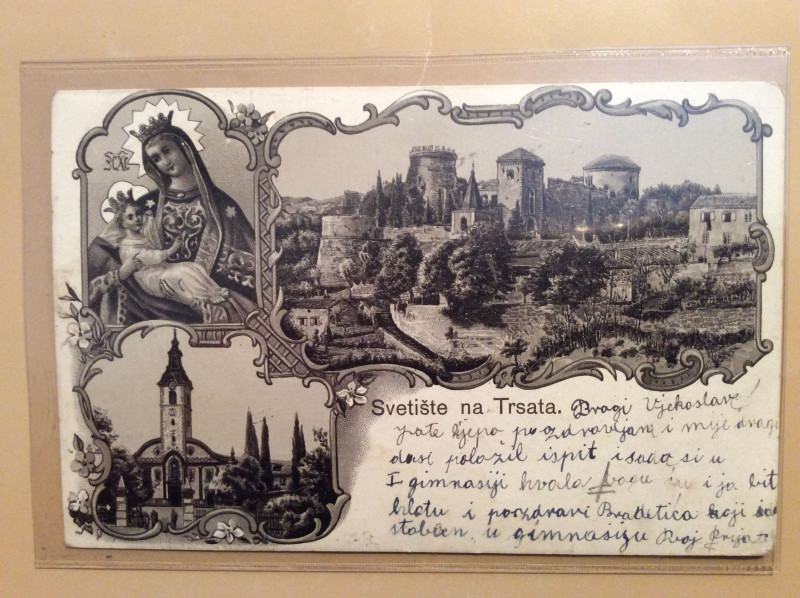 Svetište na Trsata.
Dragi Vjekoslave
jate ljepo pozdravljam i mije drago
dasi položil ispit i sada si u
I gimnasiji hvala bogu ću i ja bit
i pozdravi Bradetića koji
u gimnasizu Tvoj Prijatel